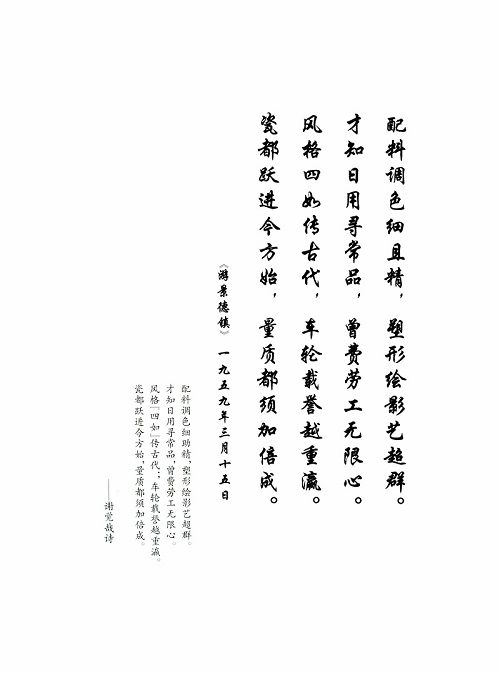 配料调色细且精，塑形绘影艺超群。
才知日用寻常品，曾费劳工无限心。
风格四如传古代，车轮载誉越重瀛。
瓷都跃进今方始，量质都须加倍成。
《游景德镇》 一九五九年三月十五日
配料调色细助精，塑形绘影艺超群。
才知日用寻常品，曾费劳工无限心。
风格「四如」传古代；，车轮载誉越重瀛。
瓷都跃进今方始，量质都须加倍成。
——谢觉哉诗